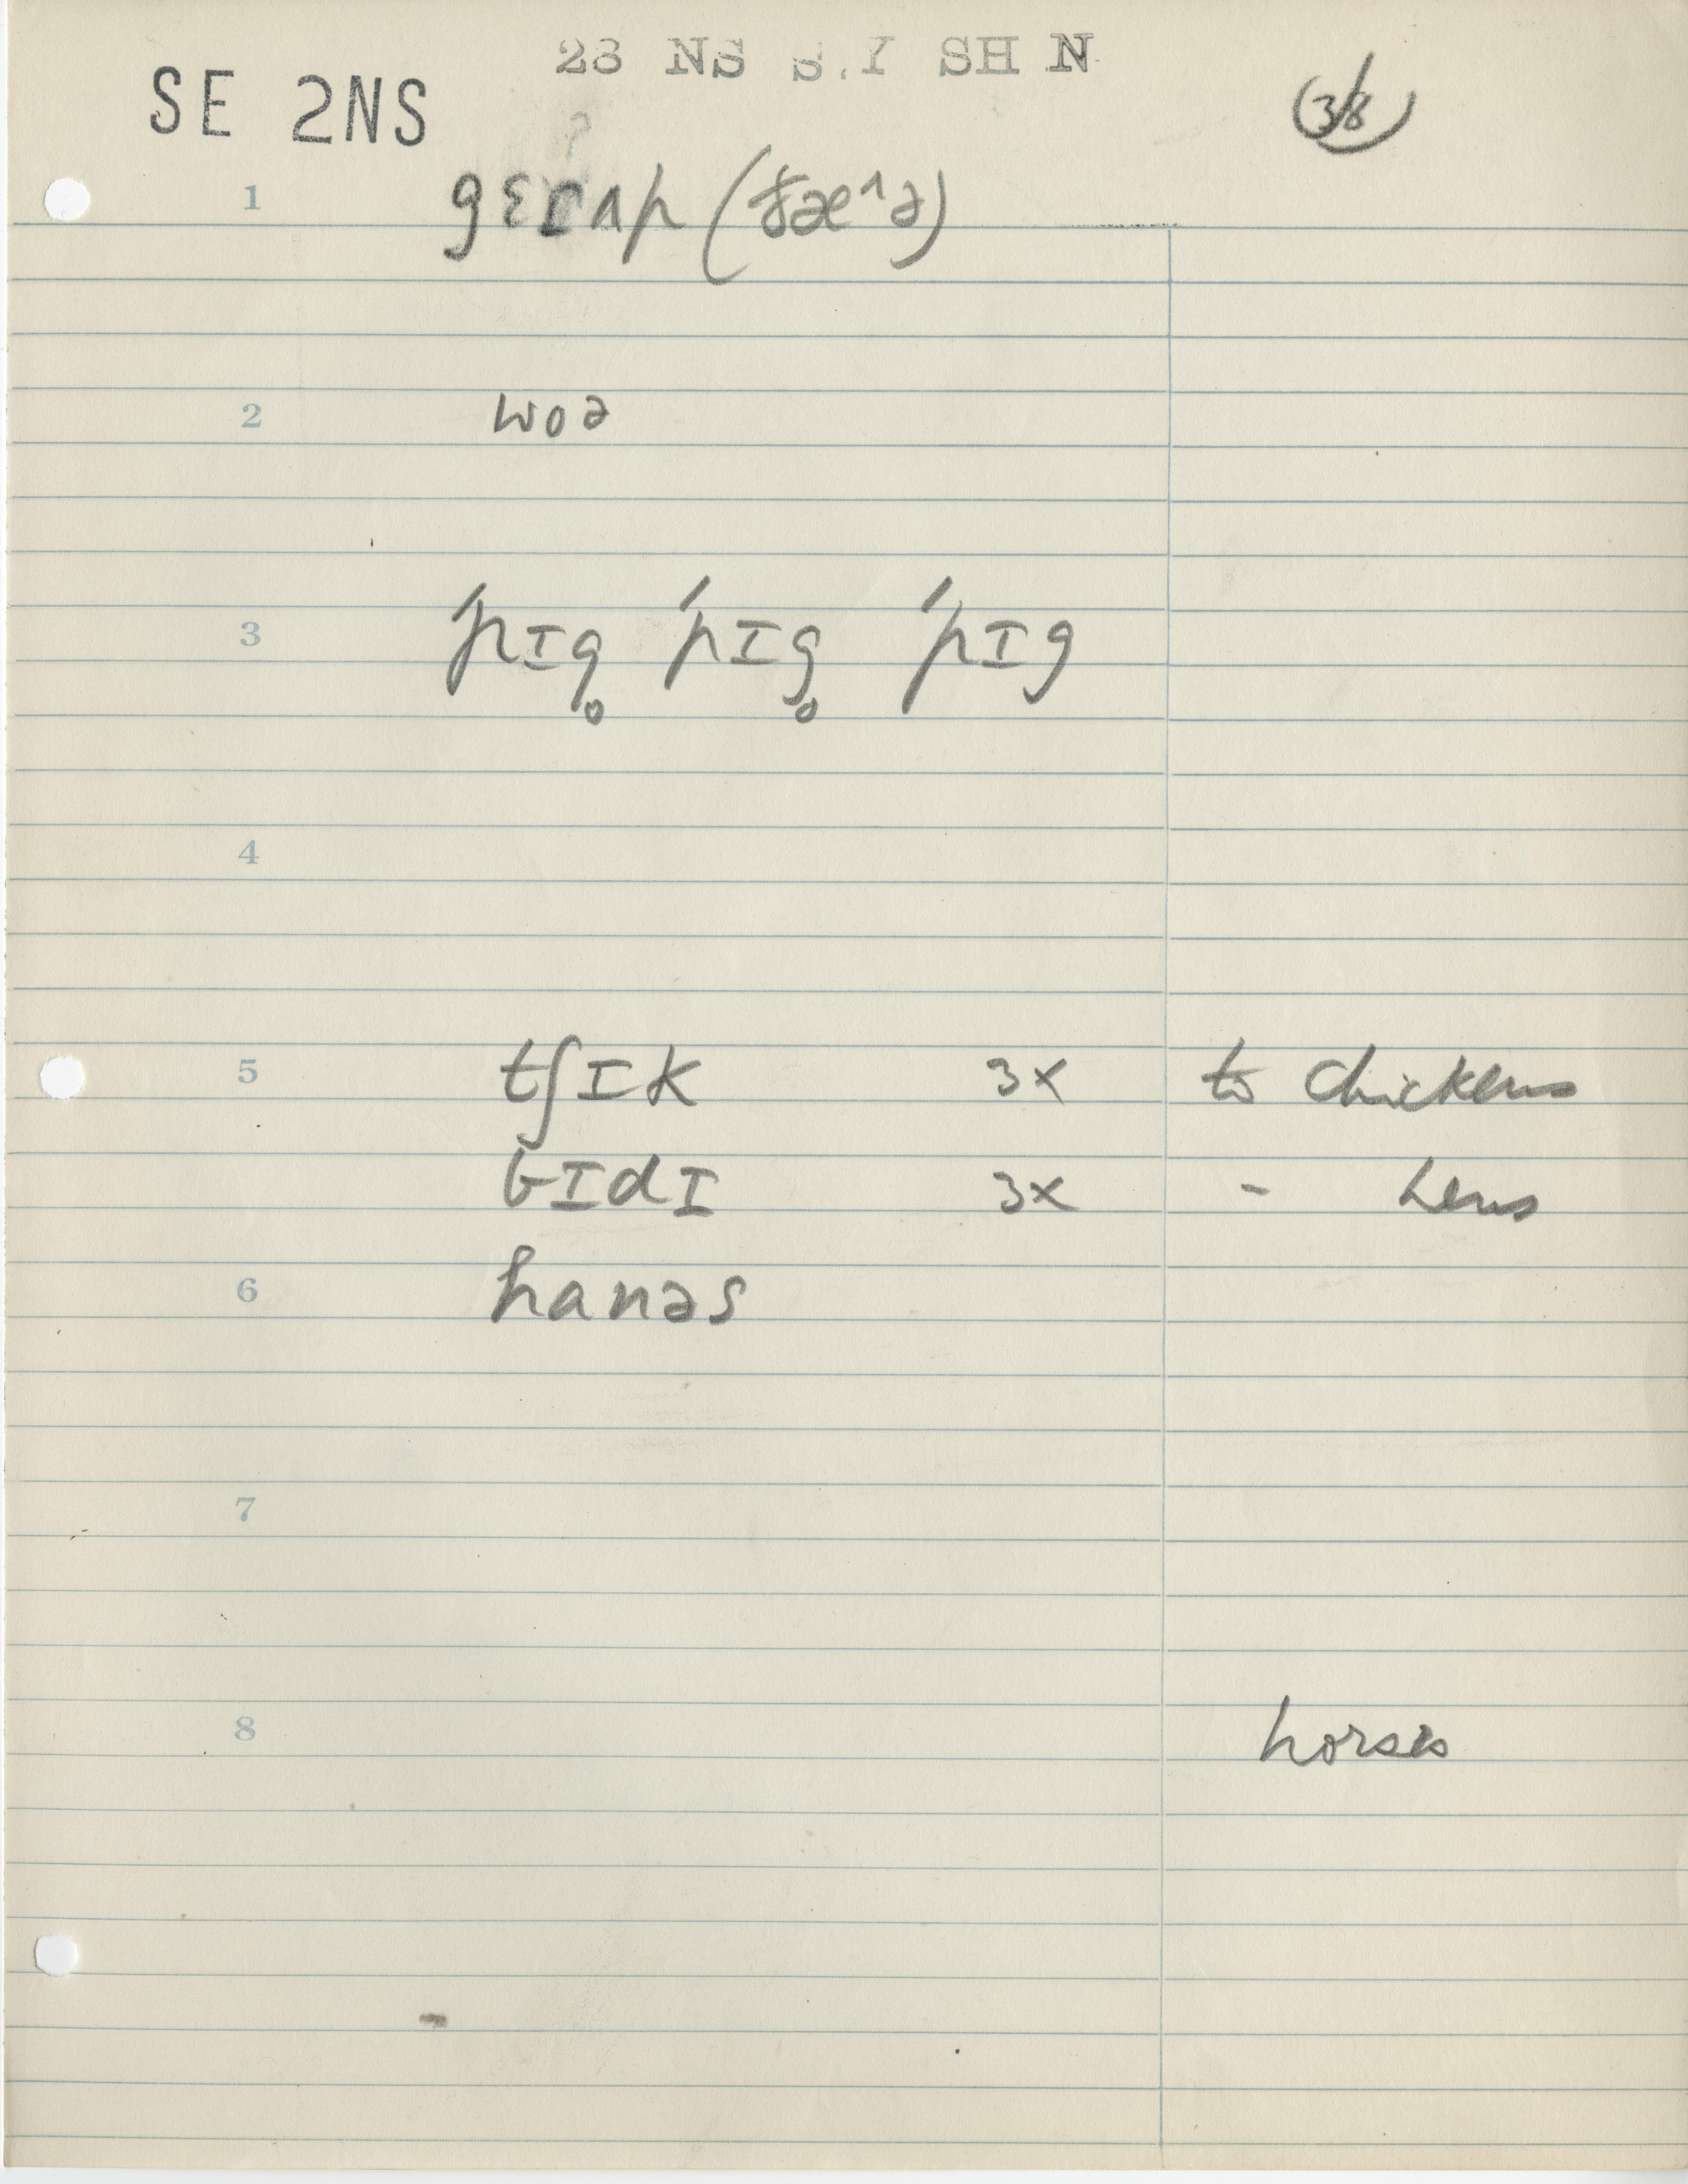 SE 2NS
38
1 gɛɪʌp (ɟæ^ə)
2 woə
3 'pɪg̥ 'pɪg̥ 'pɪg
4
5 tʃɪk 3x to chickens
bɪdɪ 3x - hens
6 hanəs
7
8 horses